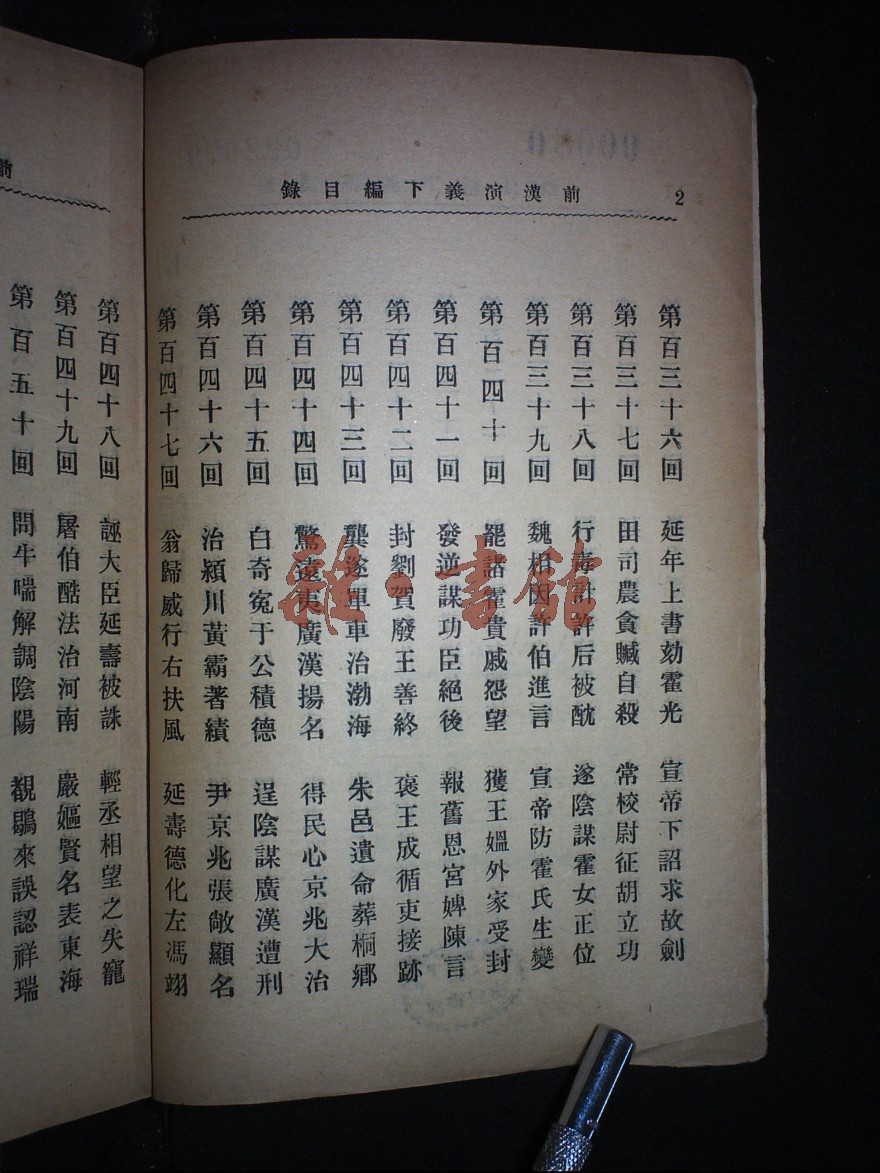 前漢演義下編目錄
2
第百三十六回 延年上書劾霍光 宣帝下詔求故劍
第百三十七回 田司農貪贓自殺 常校尉征胡立功
第百三十八回 行毒計許后被酖 遂陰謀霍女正位
第百三十九回 魏相因許伯進言 宣帝防霍氏生變
第百四十回 罷諸霍貴戚怨望 獲王媼外家受封
第百四十一回 發逆謀功臣絕後 報舊恩宮婢陳言
第百四十二回 封劉賀廢王善終 褒王成循吏接跡
第百四十三回 龔遂單車治渤海 朱邑遺命葬桐鄉
第百四十四回 驚遠夷廣漢揚名 得民心京兆大治
第百四十五回 白奇冤于公積德 逞陰謀廣漢遭刑
第百四十六回 治潁川黃霸著績 尹京兆張敞顯名
第百四十七回 翁歸威行右扶風 延壽德化左馮翊
前
第百四十八回 誣大臣延壽被誅 輕丞相望之失寵
第百四十九回 屠伯酷法治河南 嚴嫗賢名表東海
第百五十回 問牛喘解調陰陽 覩鶡來誤認祥瑞
雜·書館